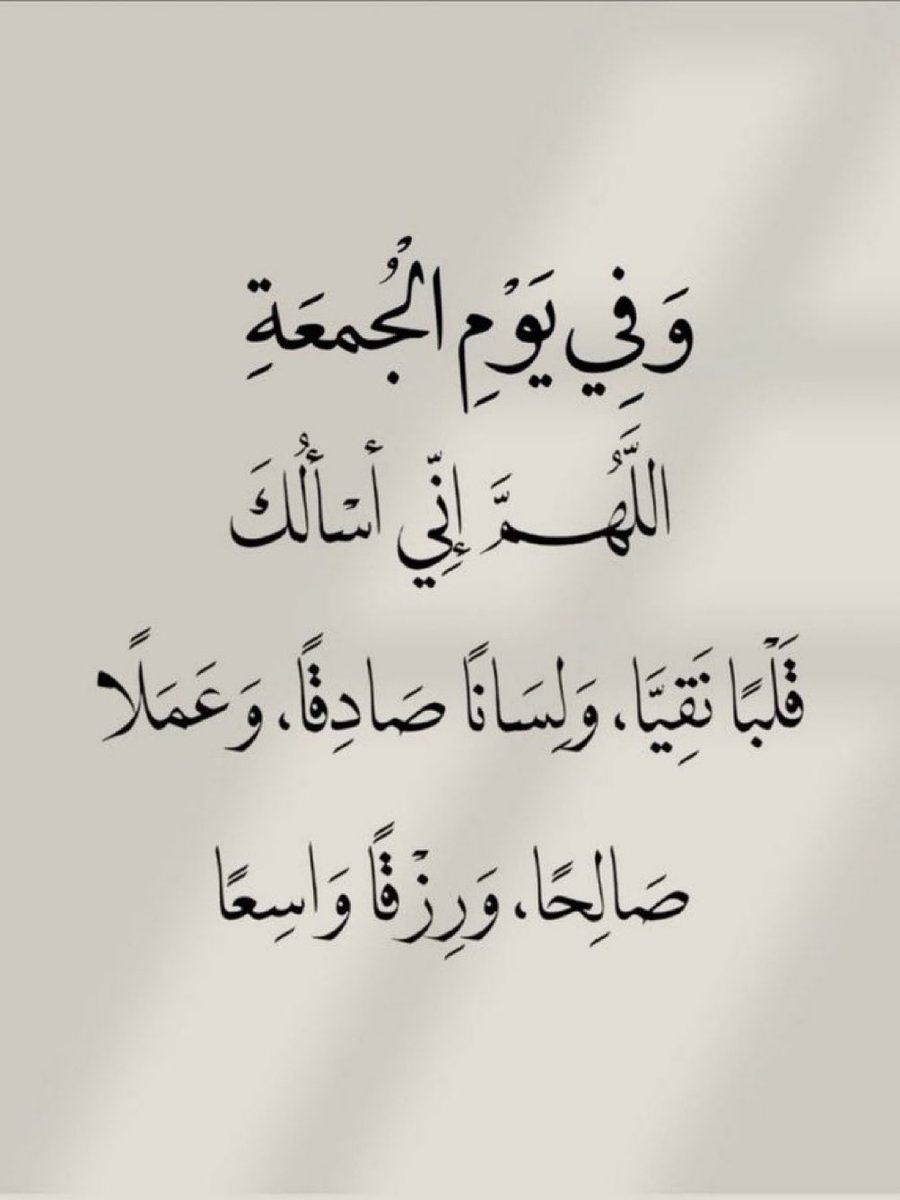 وَفِي يَوْمِ الْجُمعَةِ
اللَّهُمَّ إِنِّي أَسْأَلُكَ
قَلْبًا نَقِيَّا، وَلِسَانًا صَادِقًا، وَعَمَلًا
صَالِحًا، وَرِزْقًا وَاسِعًا